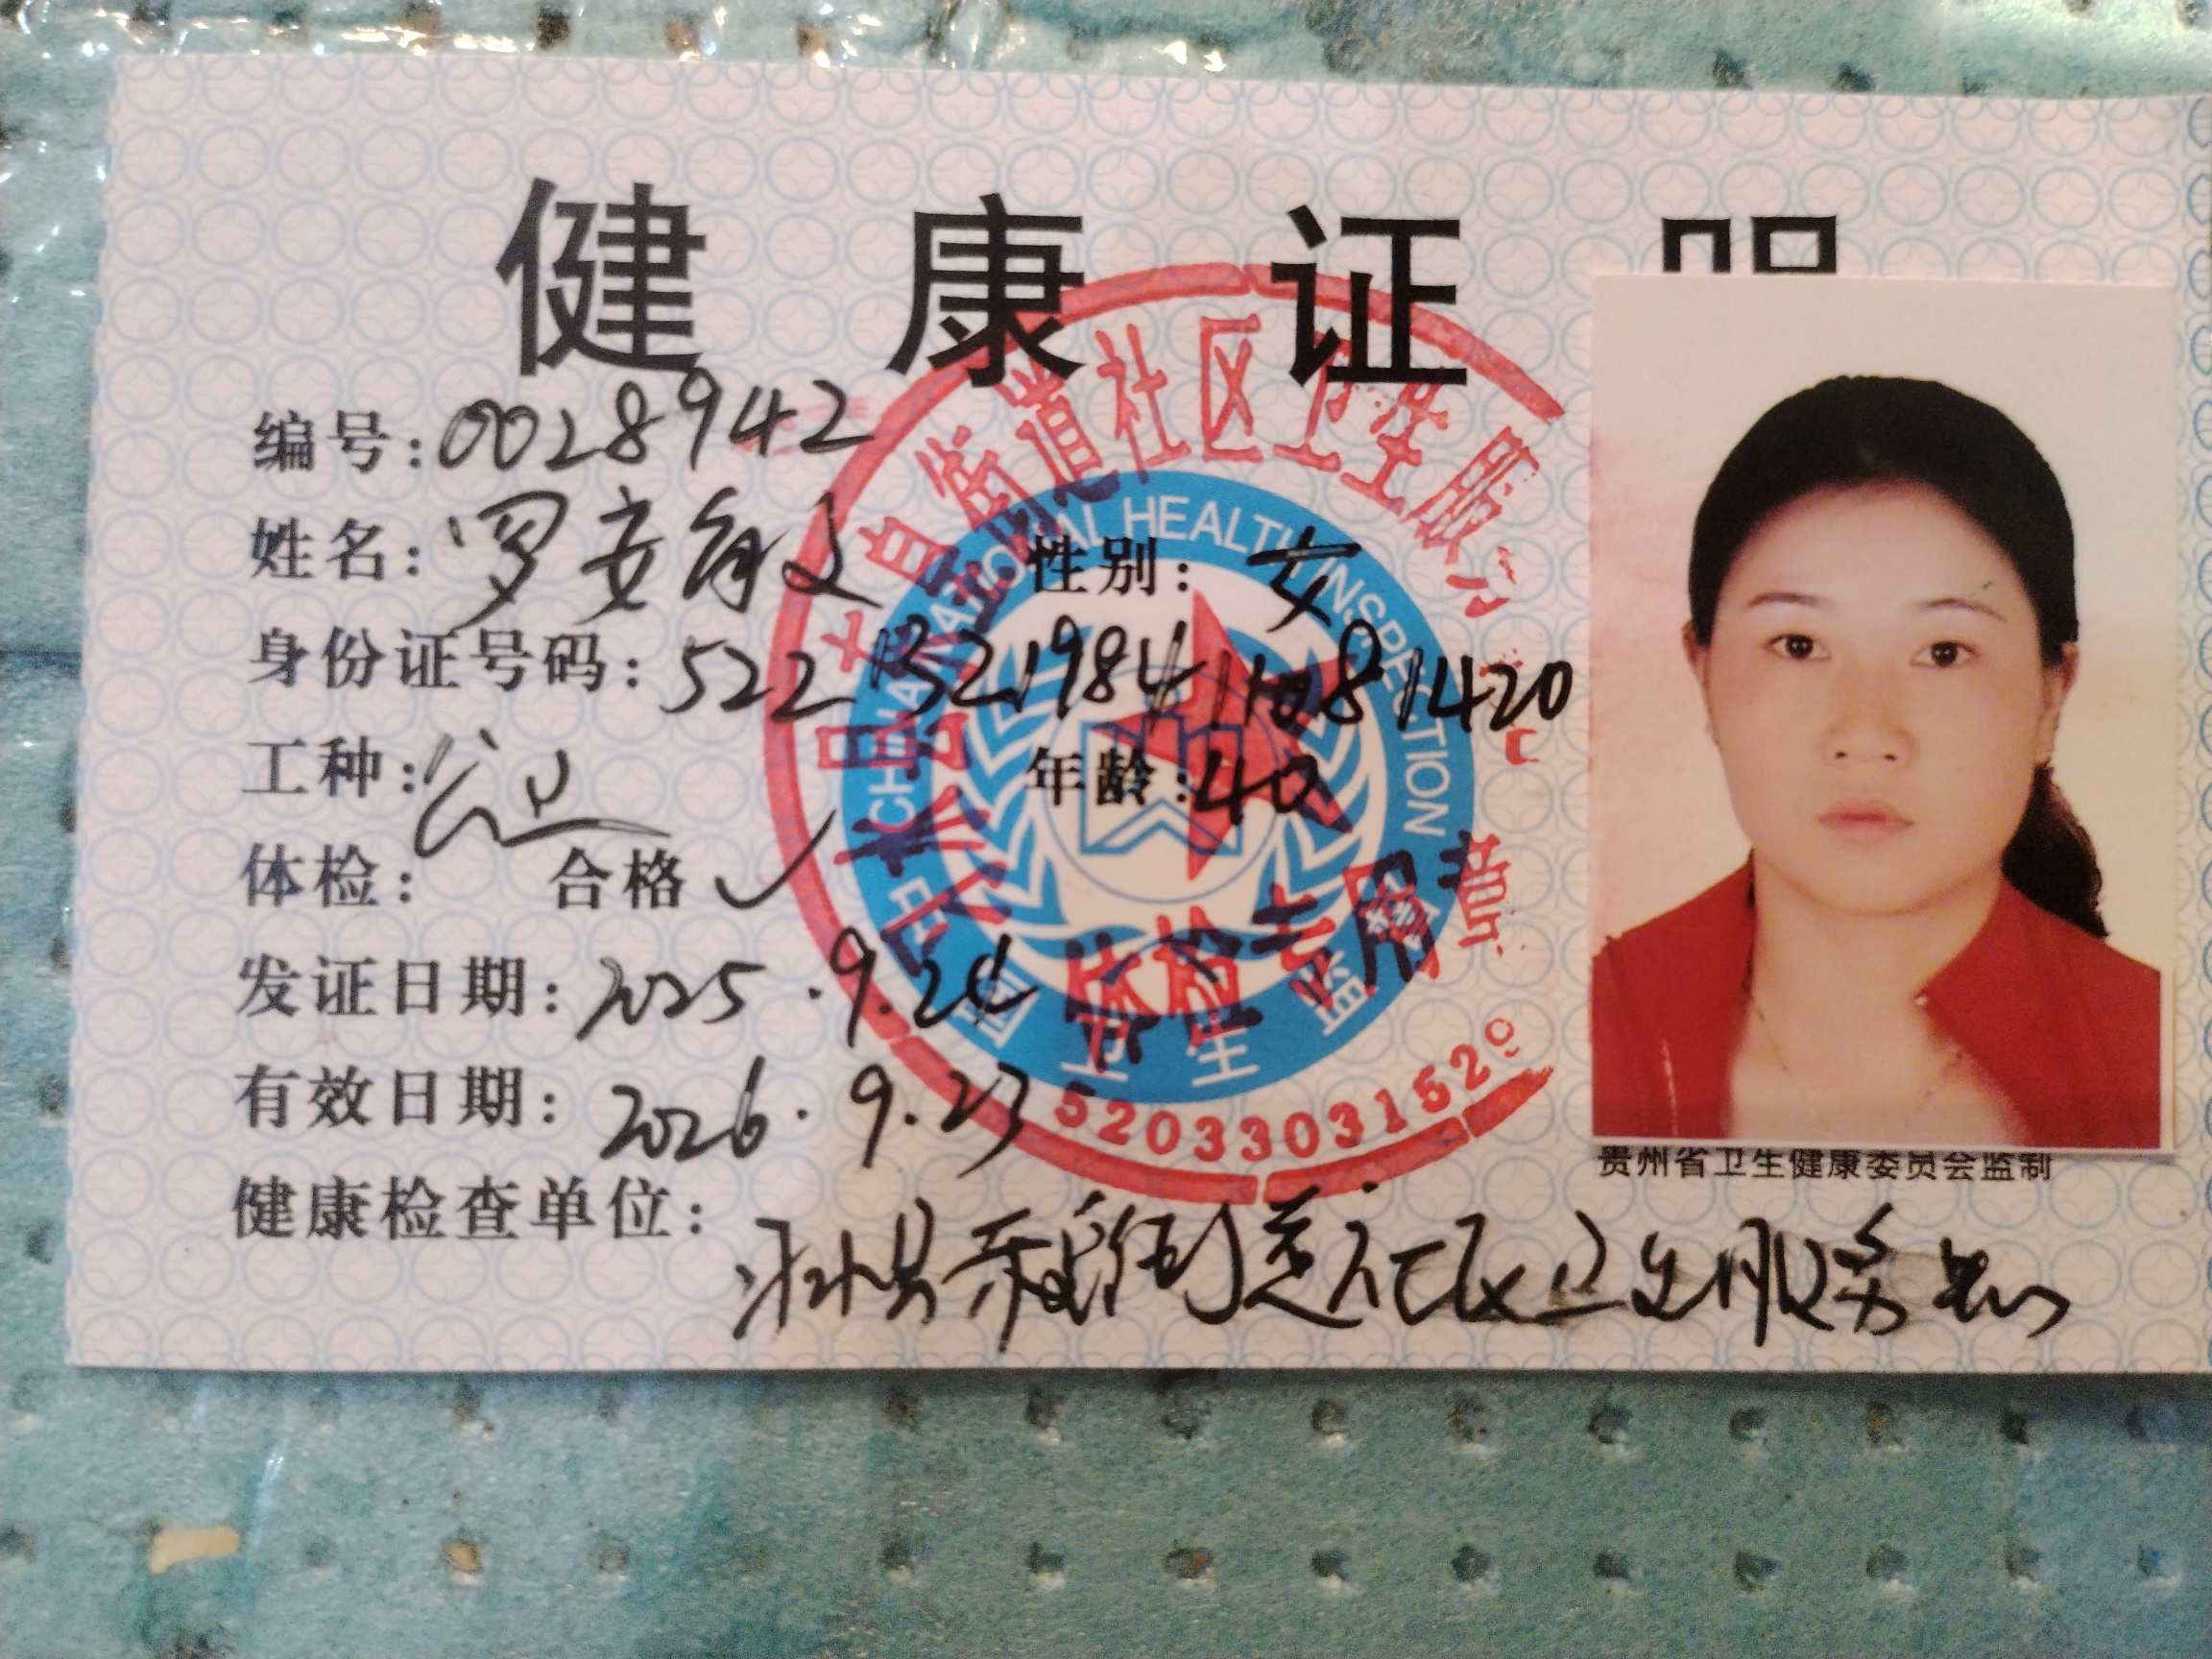 健康证
编号：0028942
姓名：罗安敏 性别：女
身份证号码：522132198411081420
工种： 年龄：40
体检： 合格 ✓
发证日期：2025.9.24
有效日期：2026.9.23
贵州省卫生健康委员会监制
健康检查单位：
街道社区卫生服务
CHINA NATIONAL HEALTH INSPECTION
中国卫生监督
街道社区卫生服
体检专用章
5203303152